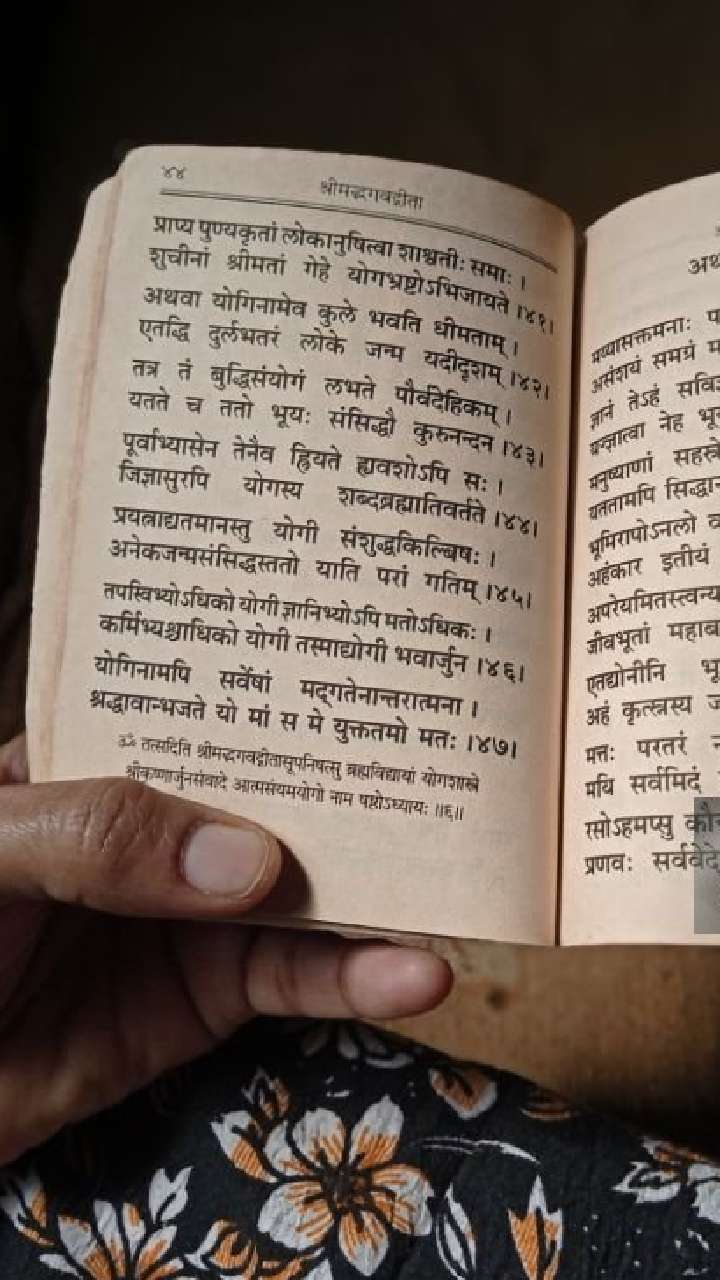 ४४
श्रीमद्भगवद्गीता
प्राप्य पुण्यकृतां लोकानुषित्वा शाश्वतीः समाः ।
शुचीनां श्रीमतां गेहे योगभ्रष्टोऽभिजायते ।४१।
अथवा योगिनामेव कुले भवति धीमताम् ।
एतद्धि दुर्लभतरं लोके जन्म यदीदृशम् ।४२।
तत्र तं बुद्धिसंयोगं लभते पौर्वदेहिकम् ।
यतते च ततो भूयः संसिद्धौ कुरुनन्दन ।४३।
पूर्वाभ्यासेन तेनैव ह्रियते ह्यवशोऽपि सः ।
जिज्ञासुरपि योगस्य शब्दब्रह्मातिवर्तते ।४४।
प्रयत्नाद्यतमानस्तु योगी संशुद्धकिल्बिषः ।
अनेकजन्मसंसिद्धस्ततो याति परां गतिम् ।४५।
तपस्विभ्योऽधिको योगी ज्ञानिभ्योऽपि मतोऽधिकः ।
कर्मिभ्यश्चाधिको योगी तस्माद्योगी भवार्जुन ।४६।
योगिनामपि सर्वेषां मद्गतेनान्तरात्मना ।
श्रद्धावान्भजते यो मां स मे युक्ततमो मतः ।४७।
ॐ तत्सदिति श्रीमद्भगवद्गीतासूपनिषत्सु ब्रह्मविद्यायां योगशास्त्रे
श्रीकृष्णार्जुनसंवादे आत्मसंयमयोगो नाम षष्ठोऽध्यायः ॥६॥
मय्यासक्तमनाः
असंशयं समग्रं
ज्ञानं तेऽहं
यज्ज्ञात्वा नेह
मनुष्याणां
यततामपि
भूमिरापोऽनलो
अहंकार इतीयं
अपरेयमितस्त्वन्य
जीवभूतां
एतद्योनीनि
अहं कृत्स्नस्य
मत्तः परतरं
मयि सर्वमिदं
रसोऽहमप्सु
प्रणवः